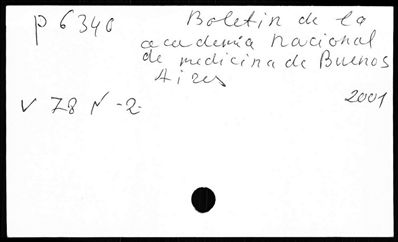 p 6340 Boletin de la
academia nacional
de medicina de Buenos
Aires
v 78 N -2- 2001